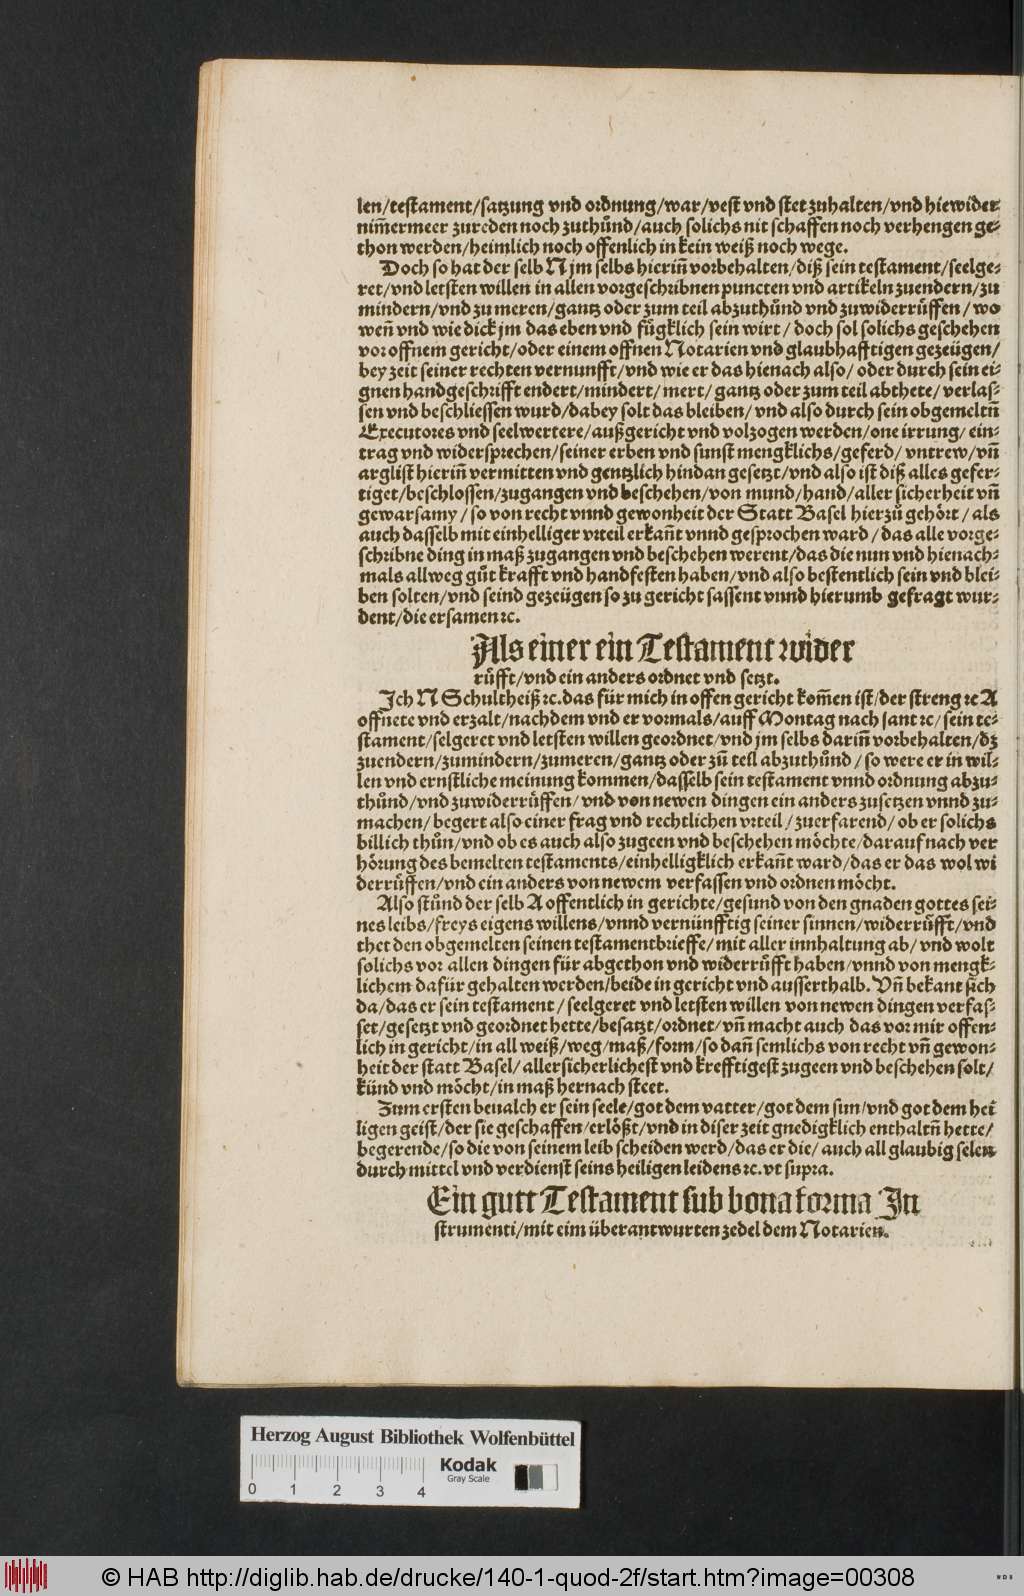 len/testament/satzung vnd ordnung/war/vest vnd stet zuhalten/vnd hiewider
nim̃ermeer zureden noch zuthůnd/auch solichs nit schaffen noch verhengen ge⸗
thon werden/heimlich noch offenlich in kein weiß noch wege.
Doch so hat der selb N jm selbs hierin̄ vorbehalten/diß sein testament/seelge⸗
ret/vnd letsten willen in allen vorgeschribnen puncten vnd artikeln zuendern/zu
mindern/vnd zu meren/gantz oder zum teil abzuthůnd vnd zuwiderrůffen/wo
wen̄ vnd wie dick jm das eben vnd fůgklich sein wirt/doch sol solichs geschehen
vor offnem gericht/oder einem offnen Notarien vnd glaubhafftigen gezeügen/
bey zeit seiner rechten vernunfft/vnd wie er das hienach also/oder durch sein ei⸗
gnen handgeschrifft endert/mindert/mert/gantz oder zum teil abthete/verlas⸗
sen vnd beschliessen wurd/dabey solt das bleiben/vnd also durch sein obgemeltn̄
Executores vnd seelwertere/außgericht vnd volzogen werden/one irrung/ein⸗
trag vnd widersprechen/seiner erben vnd sunst mengklichs/geferd/vntrew/vn̄
arglist hierin̄ vermitten vnd gentzlich hindan gesetzt/vnd also ist diß alles gefer⸗
tiget/beschlossen/zugangen vnd beschehen/von mund/hand/aller sicherheit vn̄
gewarsamy/so von recht vnnd gewonheit der Statt Basel hierzů gehört/als
auch dasselb mit einhelliger vrteil erkan̄t vnnd gesprochen ward/das alle vorge⸗
schribne ding in maß zugangen vnd beschehen werent/das die nun vnd hienach⸗
mals allweg gůt krafft vnd handfesten haben/vnd also bestentlich sein vnd blei⸗
ben solten/vnd seind gezeügen so zu gericht sassent vnnd hierumb gefragt wur⸗
dent/die ersamen ꝛc.
Als einer ein Testament wider
růfft/vnd ein anders ordnet vnd setzt.
Ich N Schultheiß ꝛc. das für mich in offen gericht kom̃en ist/der streng ꝛc A
offnete vnd erzalt/nachdem vnd er vormals/auff Montag nach sant ꝛc/sein te⸗
stament/selgeret vnd letsten willen geordnet/vnd jm selbs darin̄ vorbehalten/dz
zuendern/zumindern/zumeren/gantz oder zů teil abzuthůnd/so were er in wil⸗
len vnd ernstliche meinung kommen/dasselb sein testament vnnd ordnung abzu⸗
thůnd/vnd zuwiderrůffen/vnd von newen dingen ein anders zusetzen vnnd zu⸗
machen/begert also einer frag vnd rechtlichen vrteil/zuerfarend/ob er solichs
billich thůn/vnd ob es auch also zugeen vnd beschehen möchte/darauf nach ver
hörung des bemelten testaments/einhelligklich erkan̄t ward/das er das wol wi
derrůffen/vnd ein anders von newem verfassen vnd ordnen möcht.
Also stůnd der selb A offentlich in gerichte/gesund von den gnaden gottes sei⸗
nes leibs/freys eigens willens/vnnd vernünfftig seiner sinnen/widerrůfft/vnd
thet den obgemelten seinen testamentbrieffe/mit aller innhaltung ab/vnd wolt
solichs vor allen dingen für abgethon vnd widerrůfft haben/vnnd von mengk⸗
lichem dafür gehalten werden/beide in gericht vnd ausserthalb. Vn̄ bekant sich
da/das er sein testament/seelgeret vnd letsten willen von newen dingen verfas⸗
set/gesetzt vnd geordnet hette/besatzt/ordnet/vn̄ macht auch das vor mir offen⸗
lich in gericht/in all weiß/weg/maß/form/so dan̄ semlichs von recht vn̄ gewon⸗
heit der statt Basel/allersicherlichest vnd krefftigest zugeen vnd beschehen solt/
künd vnd möcht/in maß hernach steet.
Zum ersten beualch er sein seele/got dem vatter/got dem sun/vnd got dem hei
ligen geist/der sie geschaffen/erlößt/vnd in diser zeit gnedigklich enthaltn̄ hette/
begerende/so die von seinem leib scheiden werd/das er die/auch all glaubig selen
durch mittel vnd verdienst seins heiligen leidens ꝛc. vt supra.
Ein gutt Testament sub bona forma In
strumenti/mit eim überantwurten zedel dem Notarien.
Herzog August Bibliothek Wolfenbüttel
Kodak
Gray Scale
0 1 2 3 4
© HAB http://diglib.hab.de/drucke/140-1-quod-2f/start.htm?image=00308